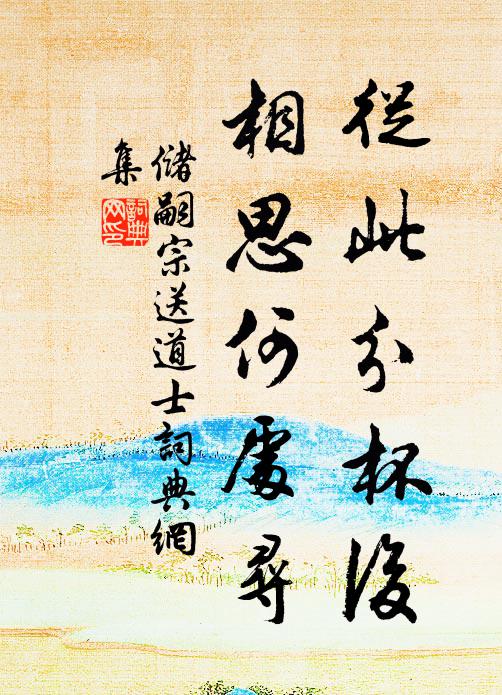 從此分杯後
相思何處尋
儲嗣宗送道士詞典網
集
詞典網印